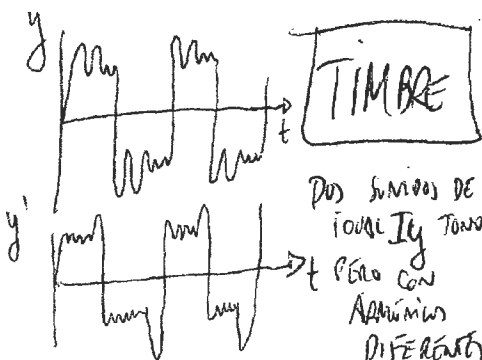 y
t
TIMBRE
DOS SONIDOS DE
IGUAL I y TONO
y'
t
PERO CON
ARMÓNICOS
DIFERENTES